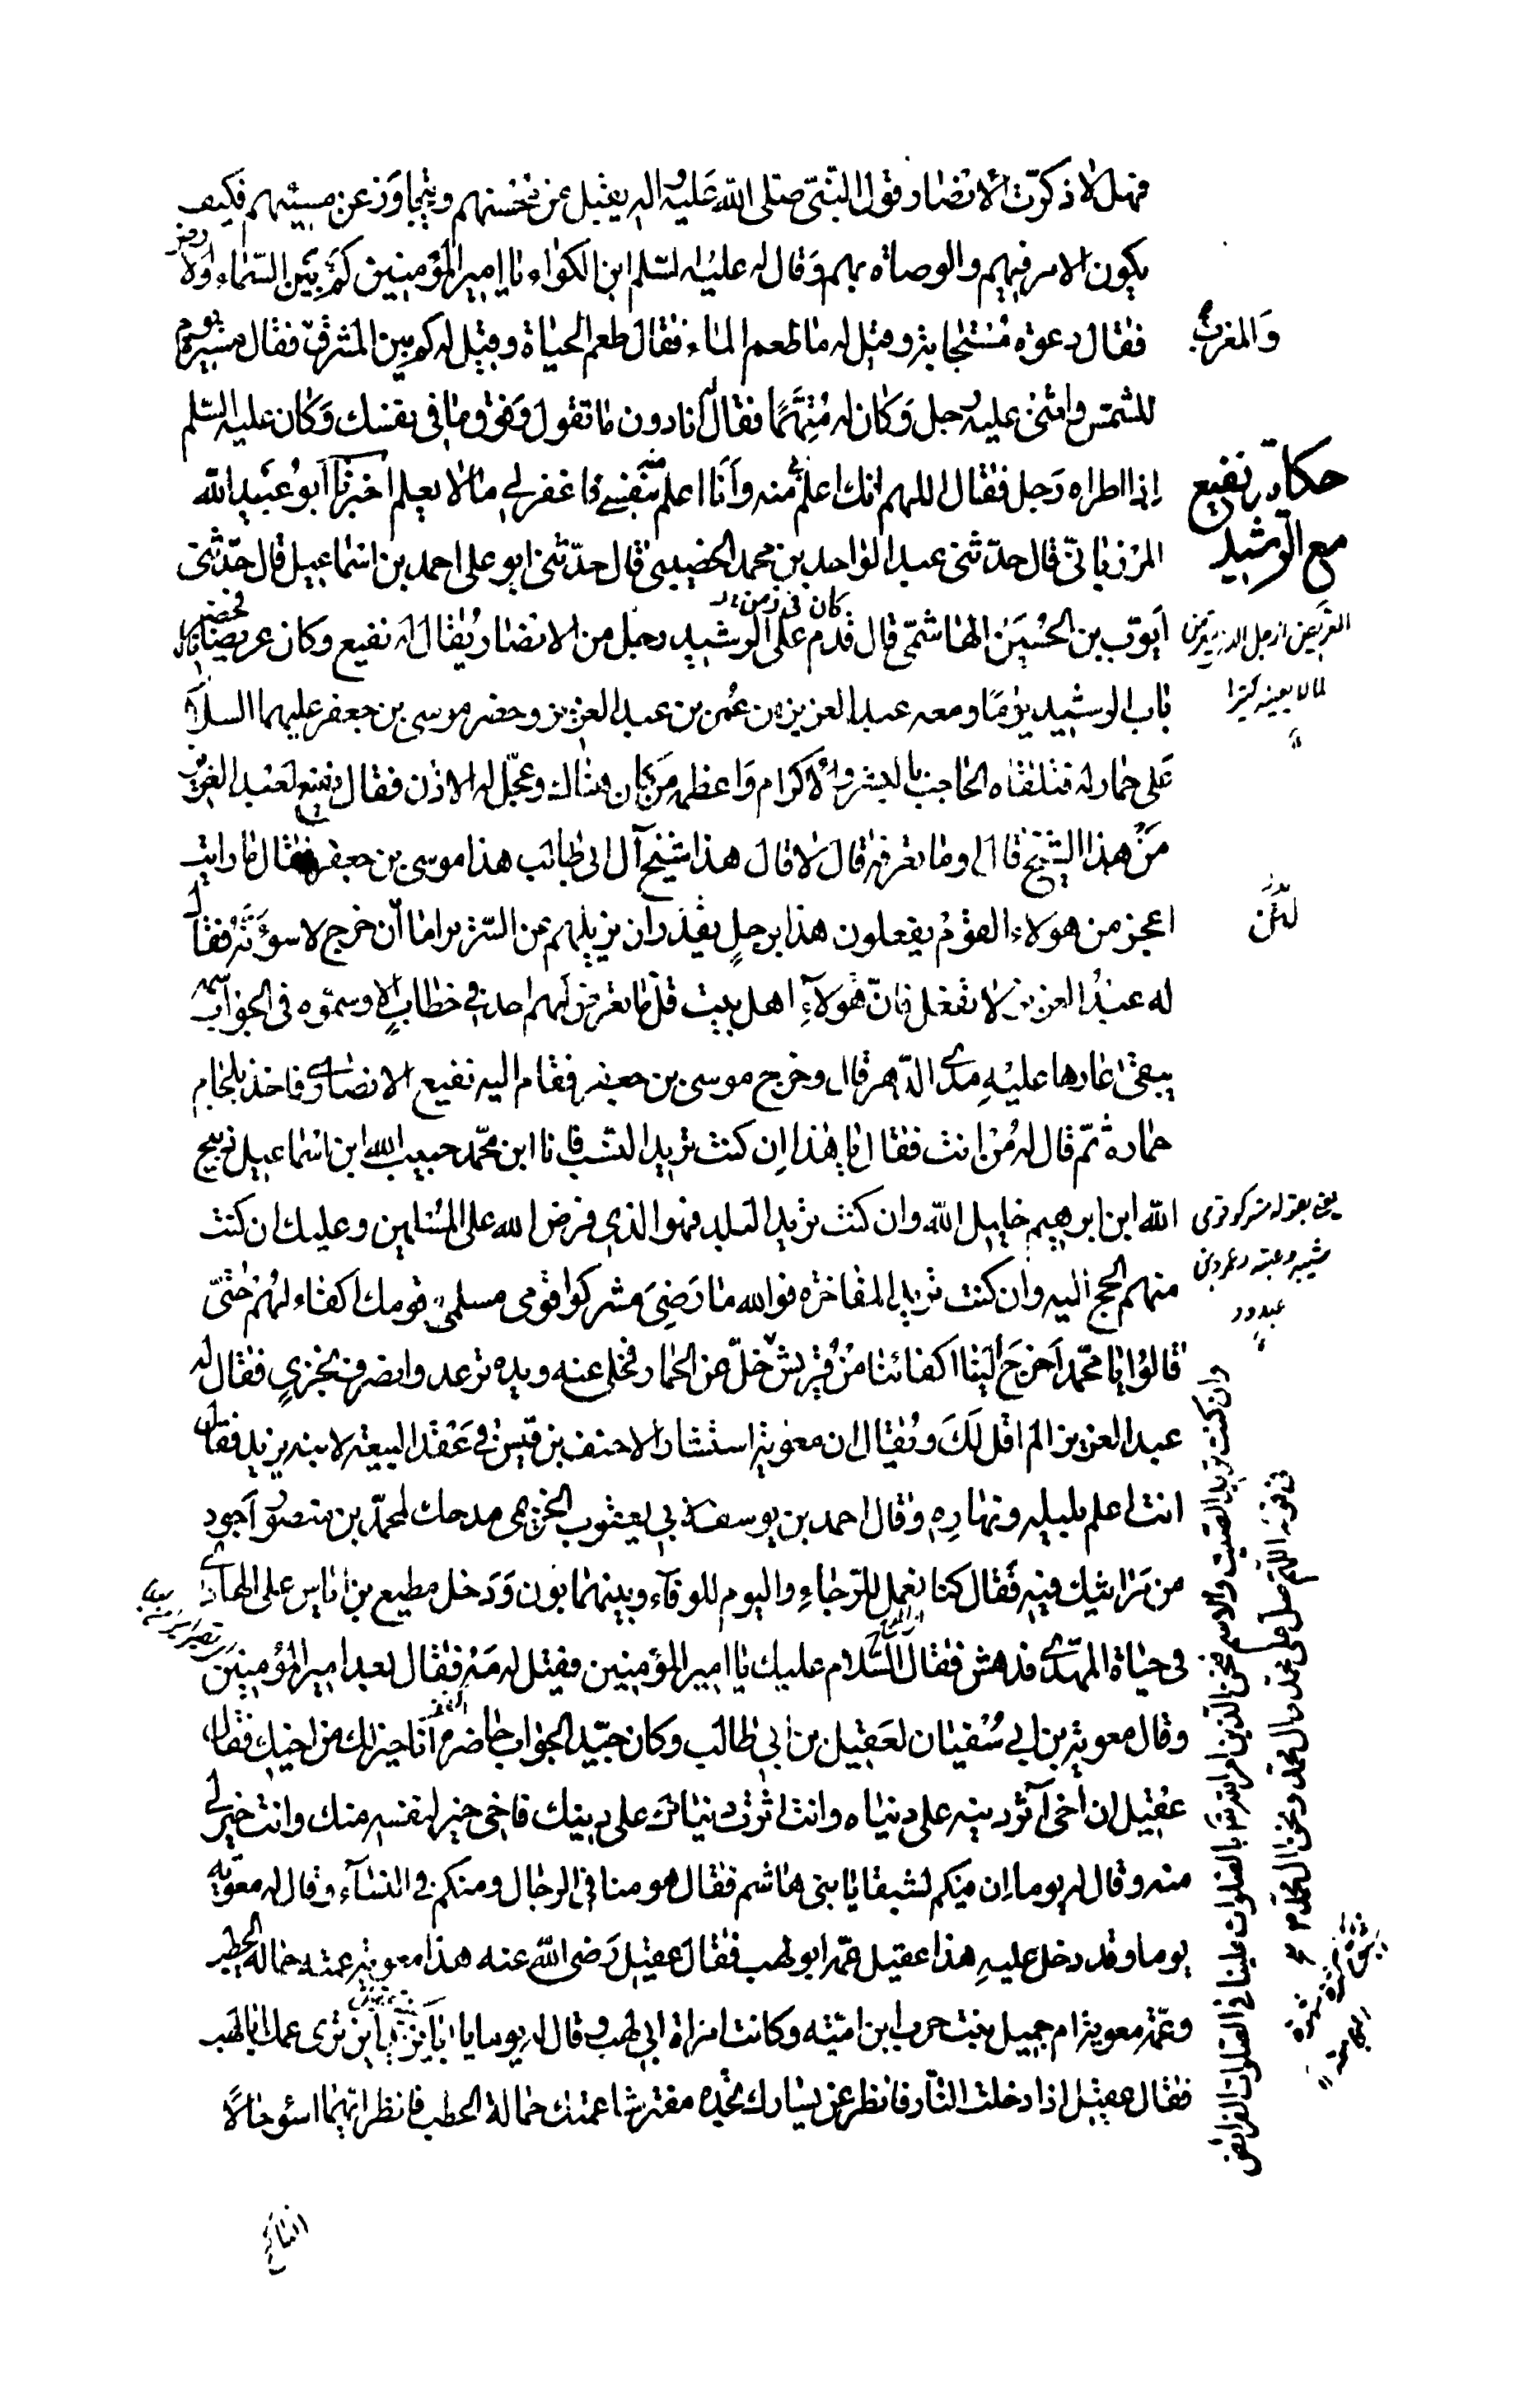 فهلا ذكرت الانصار قول النبى صلى الله عليه واله يقبل من محسنهم ويتجاوز عن مسيئهم فكيف
يكون الامر فيهم والوصاة بهم وقال له عليه السلم ابن الكواء يا امير المؤمنين كم بين السماء والارض
فقال دعوة مستجابة وقيل له ما طعم الماء فقال طعم الحياة وقيل له كم بين المشرق والمغرب فقال مسيرة يوم
للشمس واثنى عليه رجل وكان له متهما فقال انا دون ما تقول وفوق ما فى نفسك وكان عليه السلم
حكاية نفيع
مع الرشيد
اذا اطراه رجل فقال اللهم انك اعلم بى منه وانا اعلم منه بنفسى فاغفر لى ما لا يعلم اخبرنا ابو عبيد الله
المرزبانى قال حدثنى عبد الواحد بن محمد الخصيبى قال حدثنى ابو على احمد بن اسماعيل قال حدثنى
ايوب بن الحسين الهاشمى قال قدم على الرشيد رجل من الانصار يقال له نفيع وكان عريضا قال فحضر
كان فى زمن
باب الرشيد يوما ومعه عبد العزيز بن عمر بن عبد العزيز وحضر موسى بن جعفر عليهما السلام
على حمار له فتلقاه الحاجب بالبشر والاكرام واعظمه من كان هناك وعجل له الاذن فقال نفيع لعبد العزيز
من هذا الشيخ قال اوما تعرفه قال لا قال هذا شيخ آل ابى طالب هذا موسى بن جعفر فقال ما رايت
اعجز من هولاء القوم يفعلون هذا برجل يقدر ان يزيلهم عن السرير اما ان خرج لاسوءنه فقال
له عبد العزيز لا تفعل فان هولاء اهل بيت قل ما تعرض لهم احد فى خطاب الا وسموه فى الجواب سمة
يبقى عارها عليه مدى الدهر قال وخرج موسى بن جعفر فقام اليه نفيع الانصارى فاخذ بلجام
حماره ثم قال له من انت فقال يا هذا ان كنت تريد النسب فانا ابن محمد حبيب الله ابن اسماعيل ذبيح
الله ابن ابرهيم خليل الله وان كنت تريد البلد فهو الذى فرض الله على المسلمين وعليك ان كنت
منهم الحج اليه وان كنت تريد المفاخرة فوالله ما رضى مشركوا قومى مسلمى قومك اكفاء لهم حتى
قالوا يا محمد اخرج الينا اكفائنا من قريش خل عن الحمار فخلى عنه ويده ترعد وانصرف بخزى فقال له
عبد العزيز الم اقل لك ويقال ان معوية استشار الاحنف بن قيس فى عقد البيعة لابنه يزيد فقال
انت اعلم بليله ونهاره وقال احمد بن يوسف لابى يعقوب الخزيمى مدحك لمحمد بن منصور اجود
من مراثيك فيه فقال كنا نعمل للرجاء واليوم للوفاء وبينهما بون ودخل مطيع بن اياس على الهادى
فى حياة المهدى فدهش فقال السلام عليك يا امير المؤمنين فقيل له مه فقال بعد امير المؤمنين
وقال معوية بن ابى سفيان لعقيل بن ابى طالب وكان جيد الجواب حاضره انا خير لك من اخيك فقال
عقيل ان اخى آثر دينه على دنياه وانت اثرت دنياك على دينك فاخى خير لنفسه منك وانت خير لى
منه وقال له يوما ان فيكم لشبقا يا بنى هاشم فقال هو منا فى الرجال ومنكم فى النساء وقال له معوية
يوما وقد دخل عليه هذا عقيل عمه ابو لهب فقال عقيل رضى الله عنه هذا معوية عمته حمالة الحطب
وعمة معوية ام جميل بنت حرب ابن امية وكانت امراة ابى لهب وقال له يوما يا ابا يزيد اين ترى عمك ابا لهب
فقال عقيل اذا دخلت النار فانظر عن يسارك تجده مفترشا عمتك حمالة الحطب فانظر ايهما اسوء حالا
يعنى بقوله مشركو قومى
شيبه وعتبه وعمرو بن
عبدود
وان كنت تريد الصيت والاسم فنحن الذين امر الله تعالى بالصلوات علينا فى الصلوات الفرائض
فى قوله اللهم صل على محمد وال محمد ونحن ال محمد